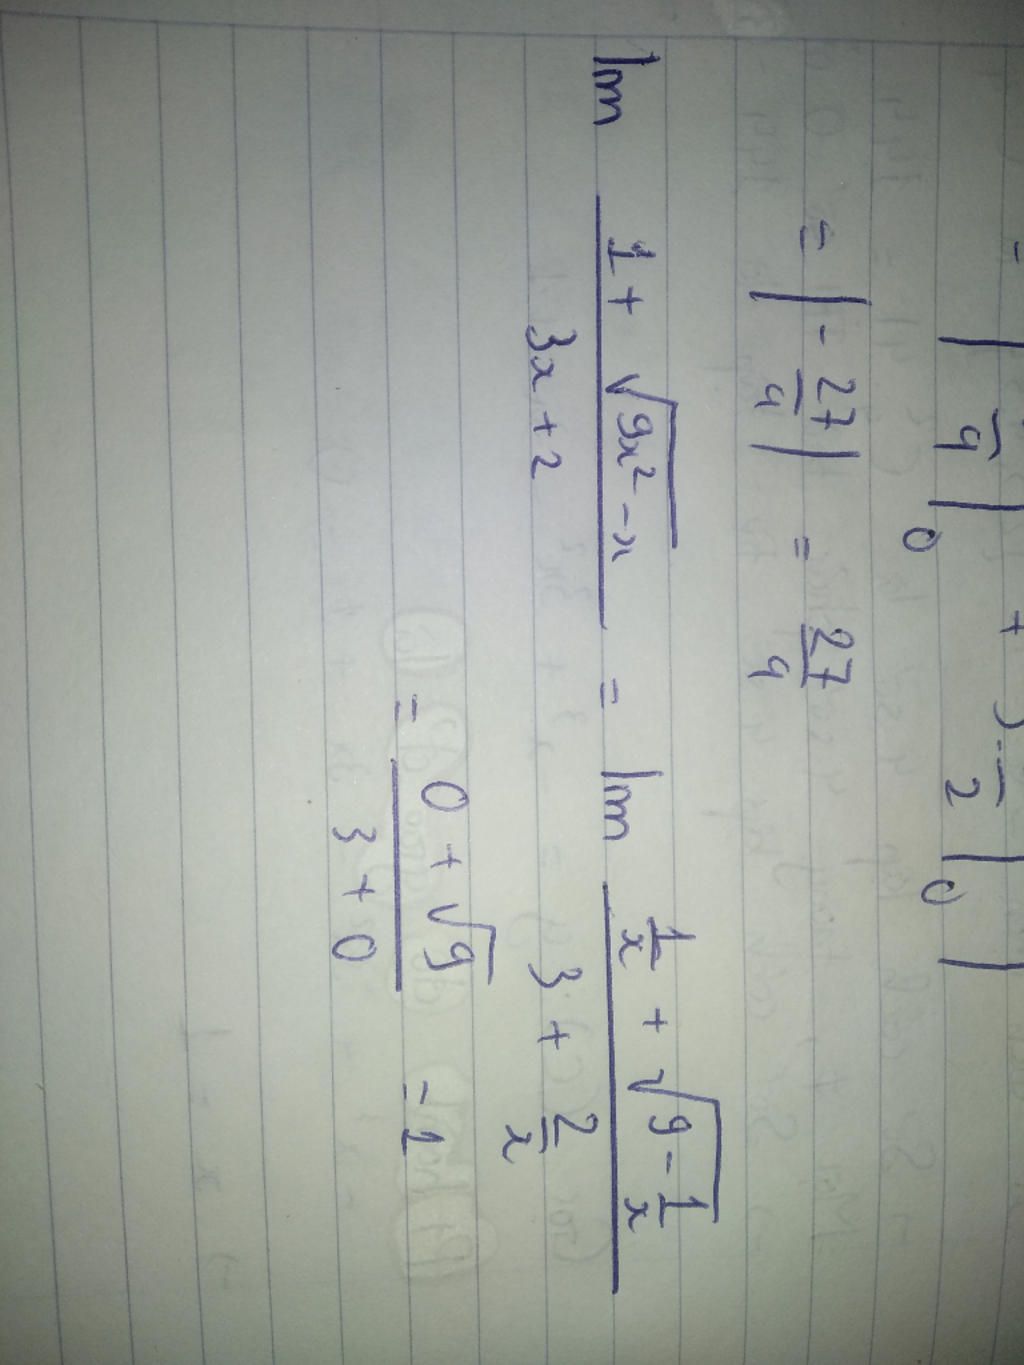 = | - 27/4 | = 27/4
lim (1 + √(9x² - x)) / (3x + 2) = lim (1/x + √(9 - 1/x)) / (3 + 2/x)
= (0 + √9) / (3 + 0) = 1